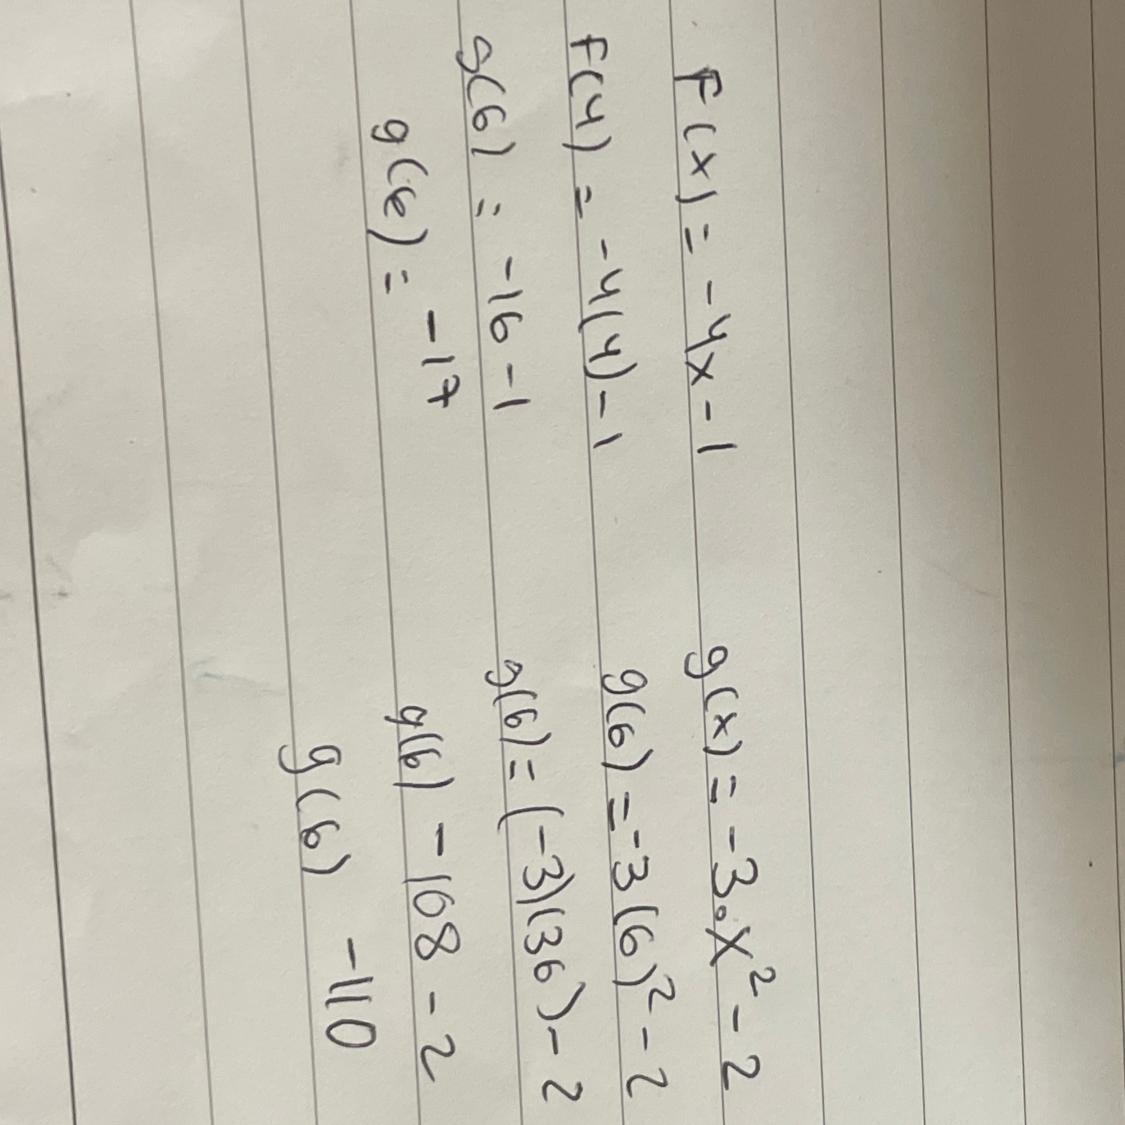 F(x) = -4x - 1
F(4) = -4(4) - 1
g(6) = -16 - 1
g(6) = -17
g(x) = -3∘x² - 2
g(6) = -3(6)² - 2
g(6) = (-3)(36) - 2
g(6) -108 - 2
g(6) -110